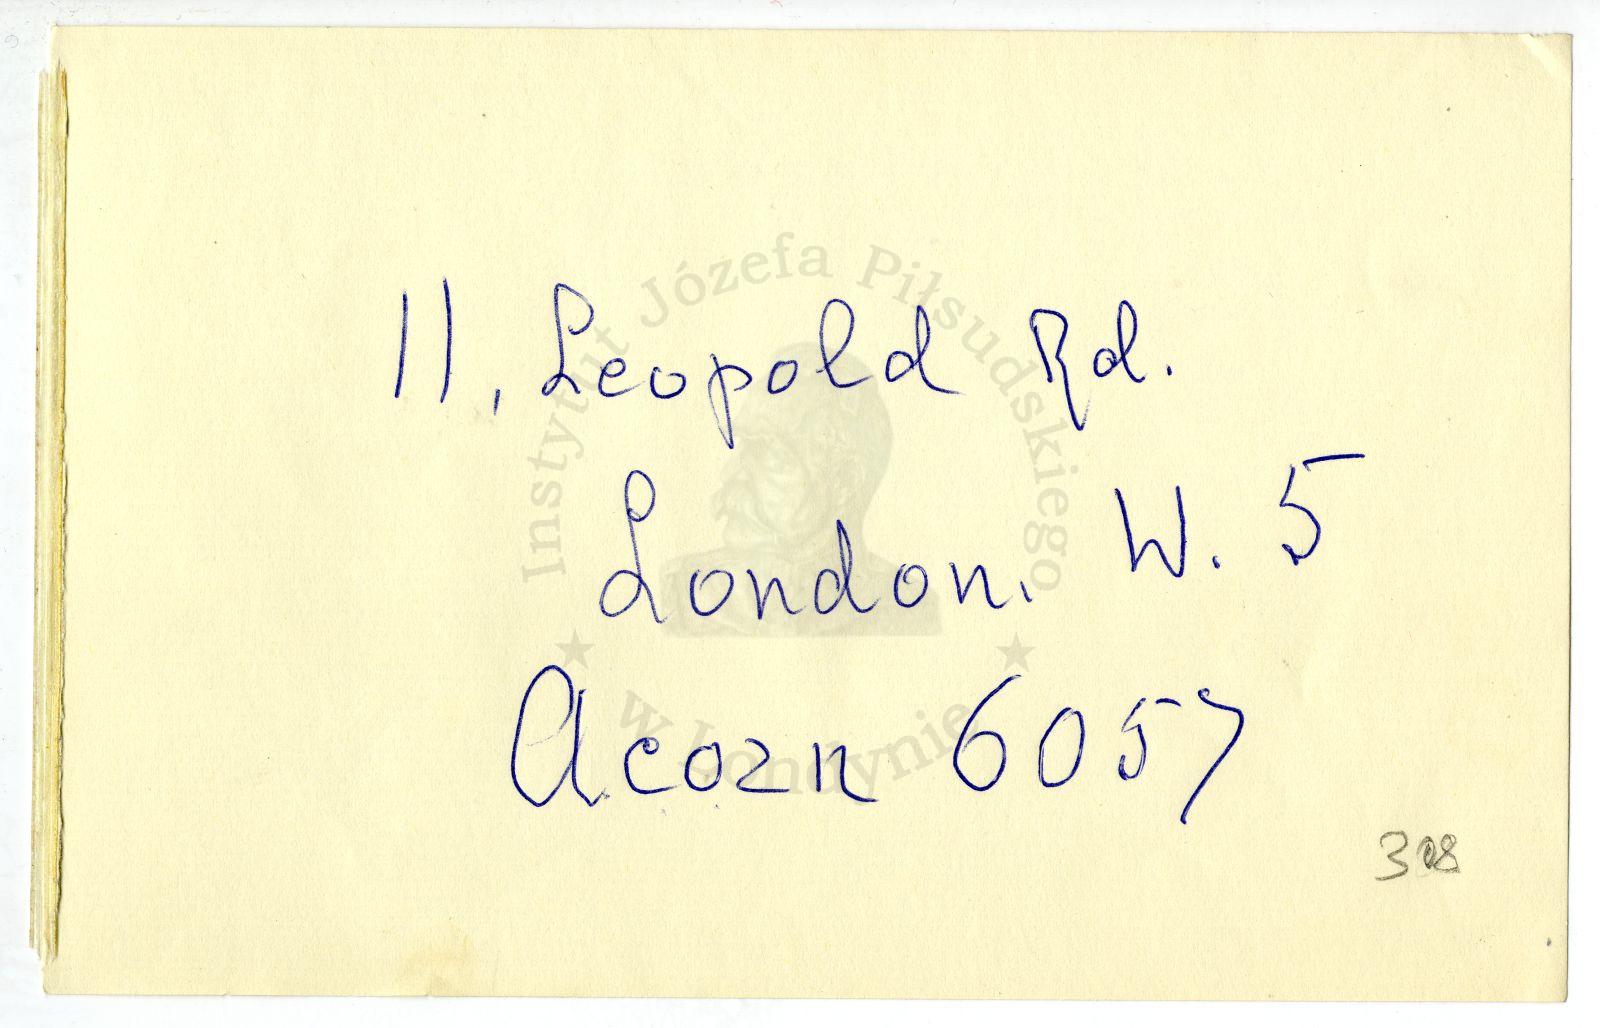 11, Leopold Rd.
London, W. 5
Acorn 6057
Instytut Józefa Piłsudskiego
w Londynie